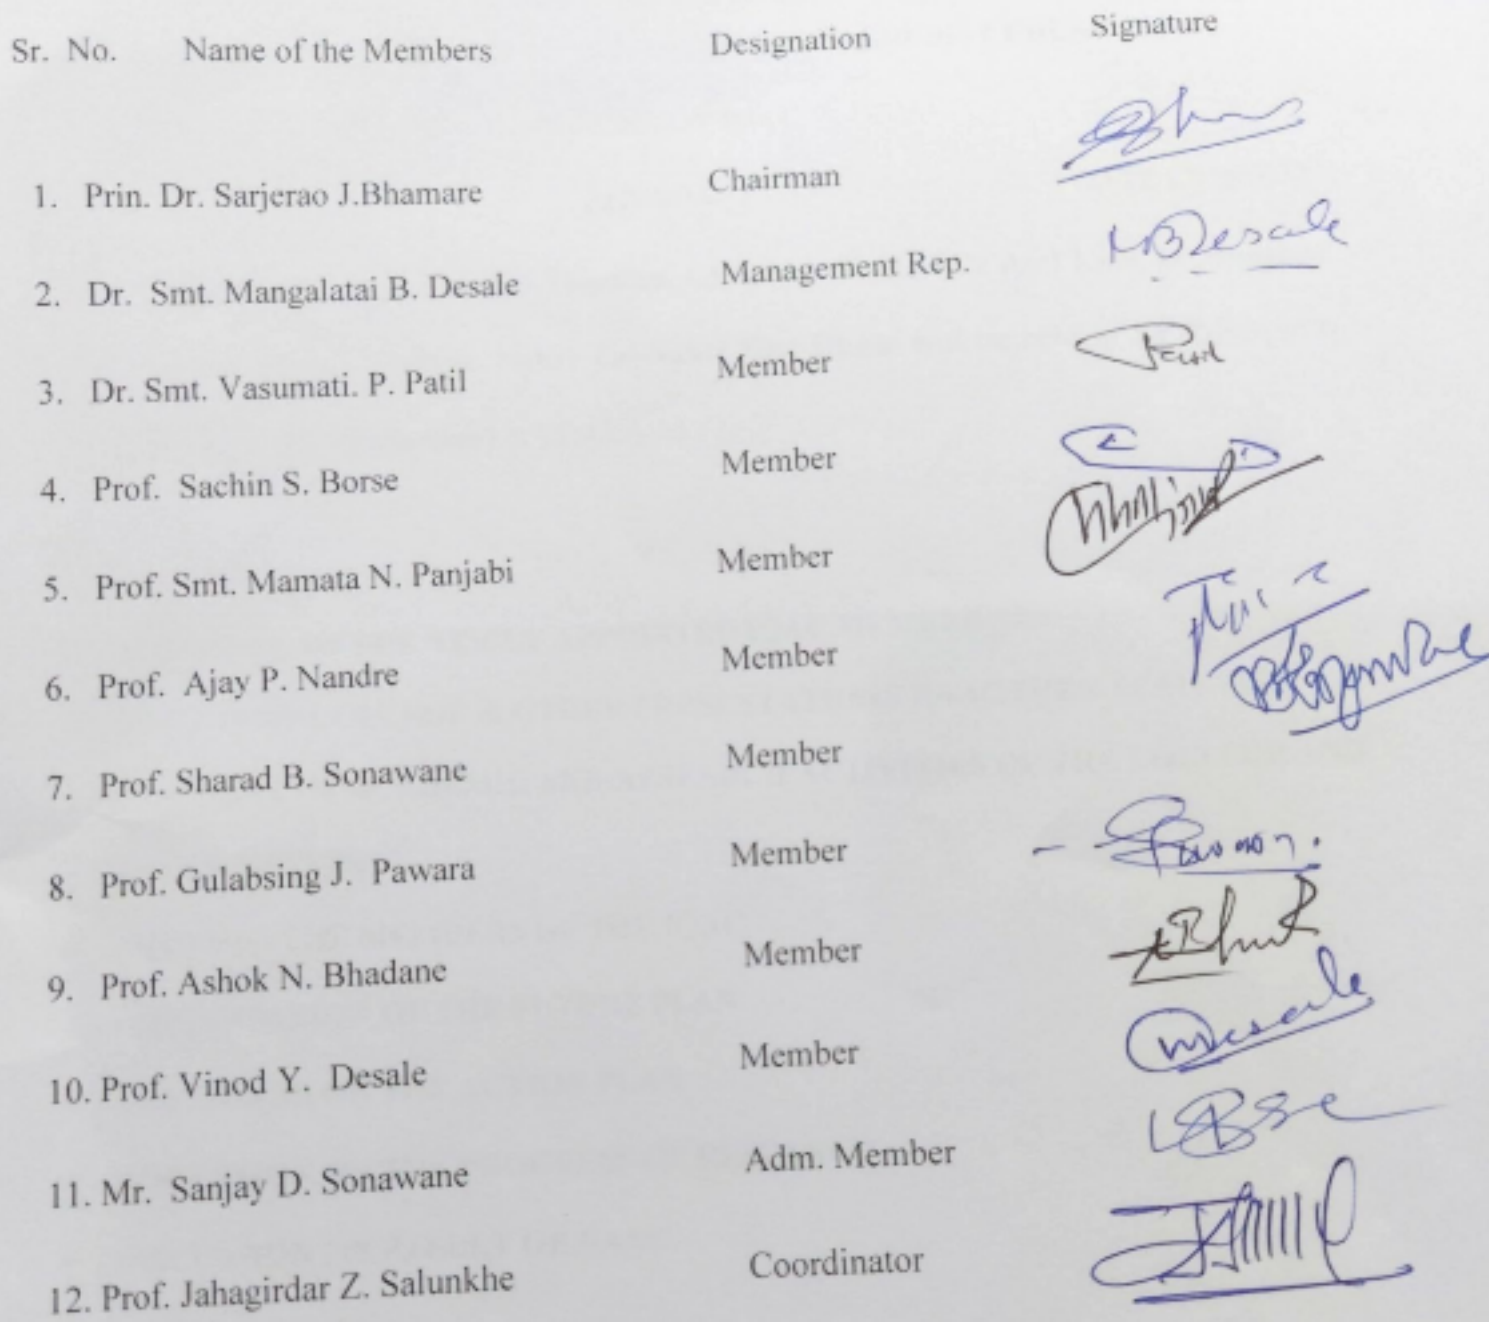 Sr. No. Name of the Members Designation Signature
1. Prin. Dr. Sarjerao J.Bhamare Chairman
2. Dr. Smt. Mangalatai B. Desale Management Rep. MBDesale
3. Dr. Smt. Vasumati. P. Patil Member
4. Prof. Sachin S. Borse Member
5. Prof. Smt. Mamata N. Panjabi Member
6. Prof. Ajay P. Nandre Member
7. Prof. Sharad B. Sonawane Member
8. Prof. Gulabsing J. Pawara Member
9. Prof. Ashok N. Bhadane Member
10. Prof. Vinod Y. Desale Member
11. Mr. Sanjay D. Sonawane Adm. Member
12. Prof. Jahagirdar Z. Salunkhe Coordinator